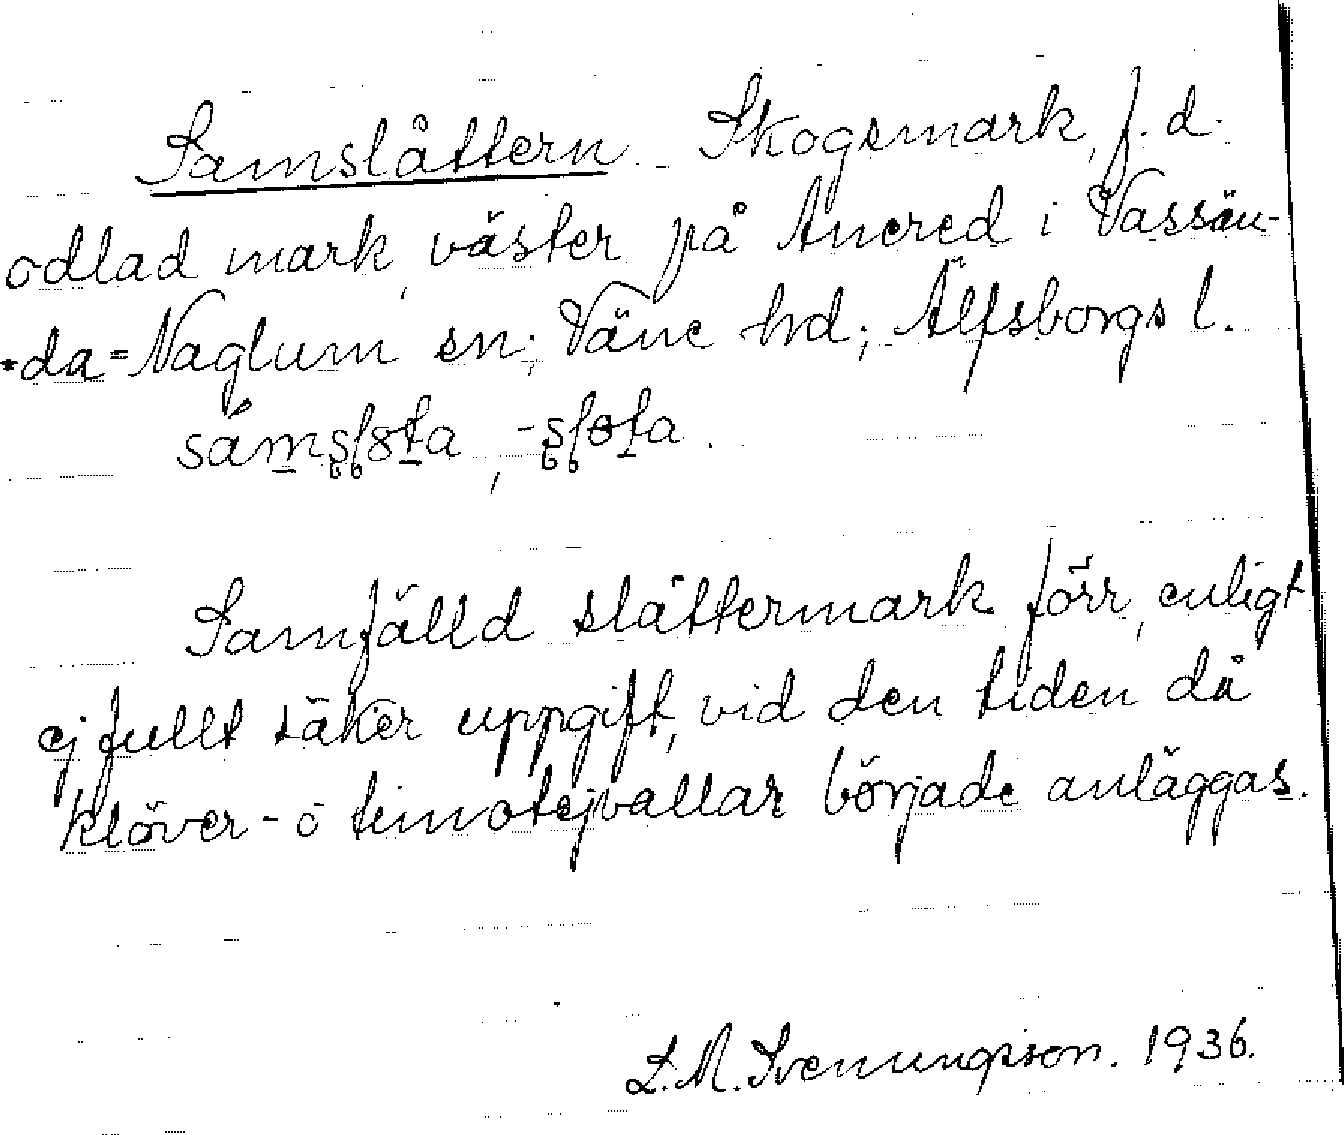 Samslåttern. Skogsmark, f. d.
odlad mark, väster på Ancred i Vassän-
-da=Naglum sn; Väne hd; Älfsborgs l.

Samfälld slåttermark förr, enligt
ej fullt säker uppgift, vid den tiden då
klöver- o timotejvallar började anläggas.
L. M. Svenungsson. 1936.